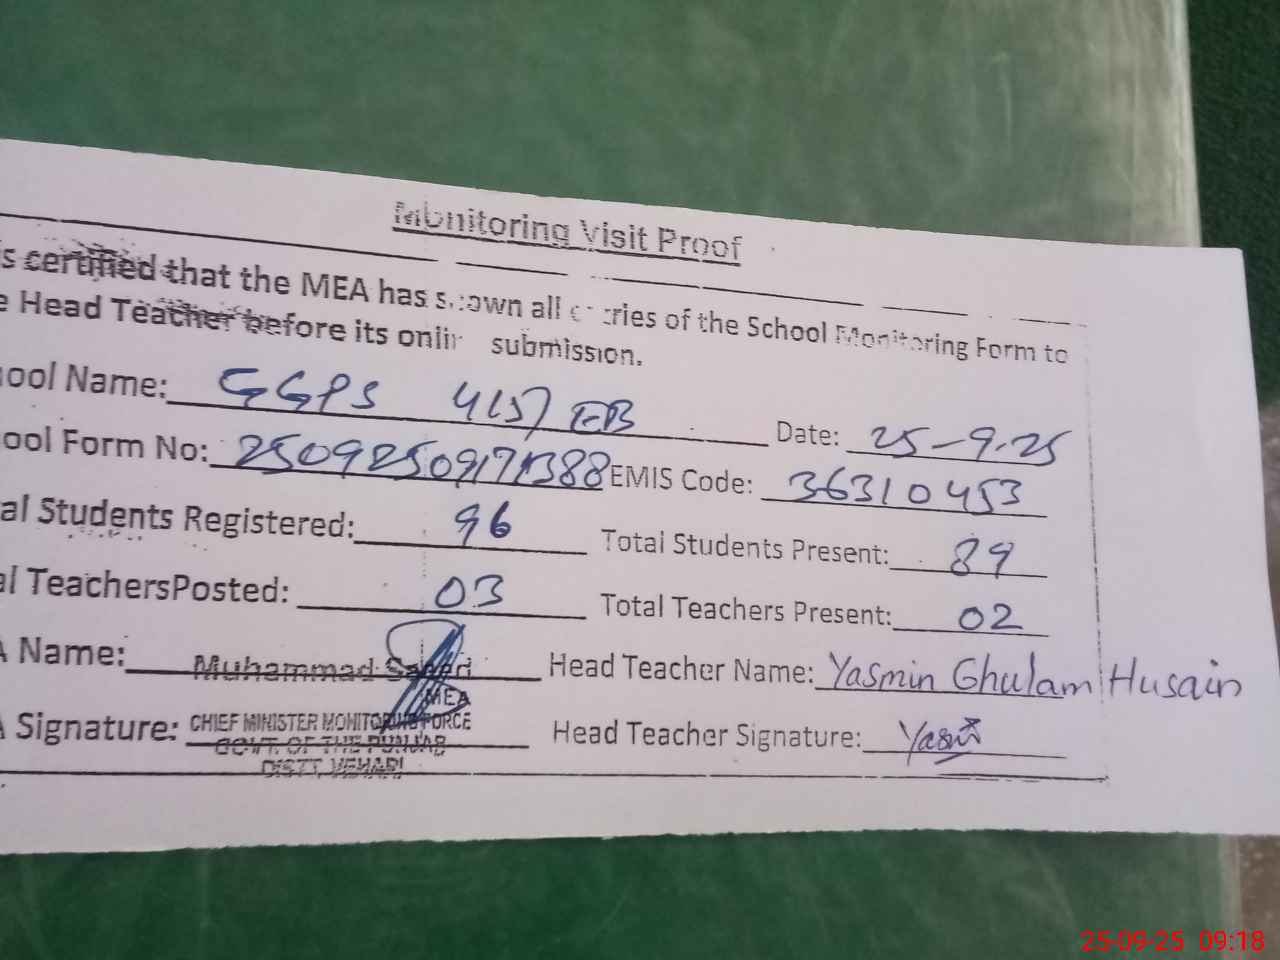 Monitoring Visit Proof
s certified that the MEA has shown all entries of the School Monitoring Form to
e Head Teacher before its onlin submission.
ool Name: GGPS 415/EB Date: 25-9-25
ool Form No: EMIS Code: 36310453
al Students Registered: 96 Total Students Present: 89
al TeachersPosted: 03 Total Teachers Present: 02
A Name: Muhammad Saeed Head Teacher Name: Yasmin Ghulam Husain
MEA
A Signature: CHIEF MINISTER MONITORING FORCE Head Teacher Signature: Yasmin
GOVT. OF THE PUNJAB
DISTT. VEHARI
25-09-25 09:18